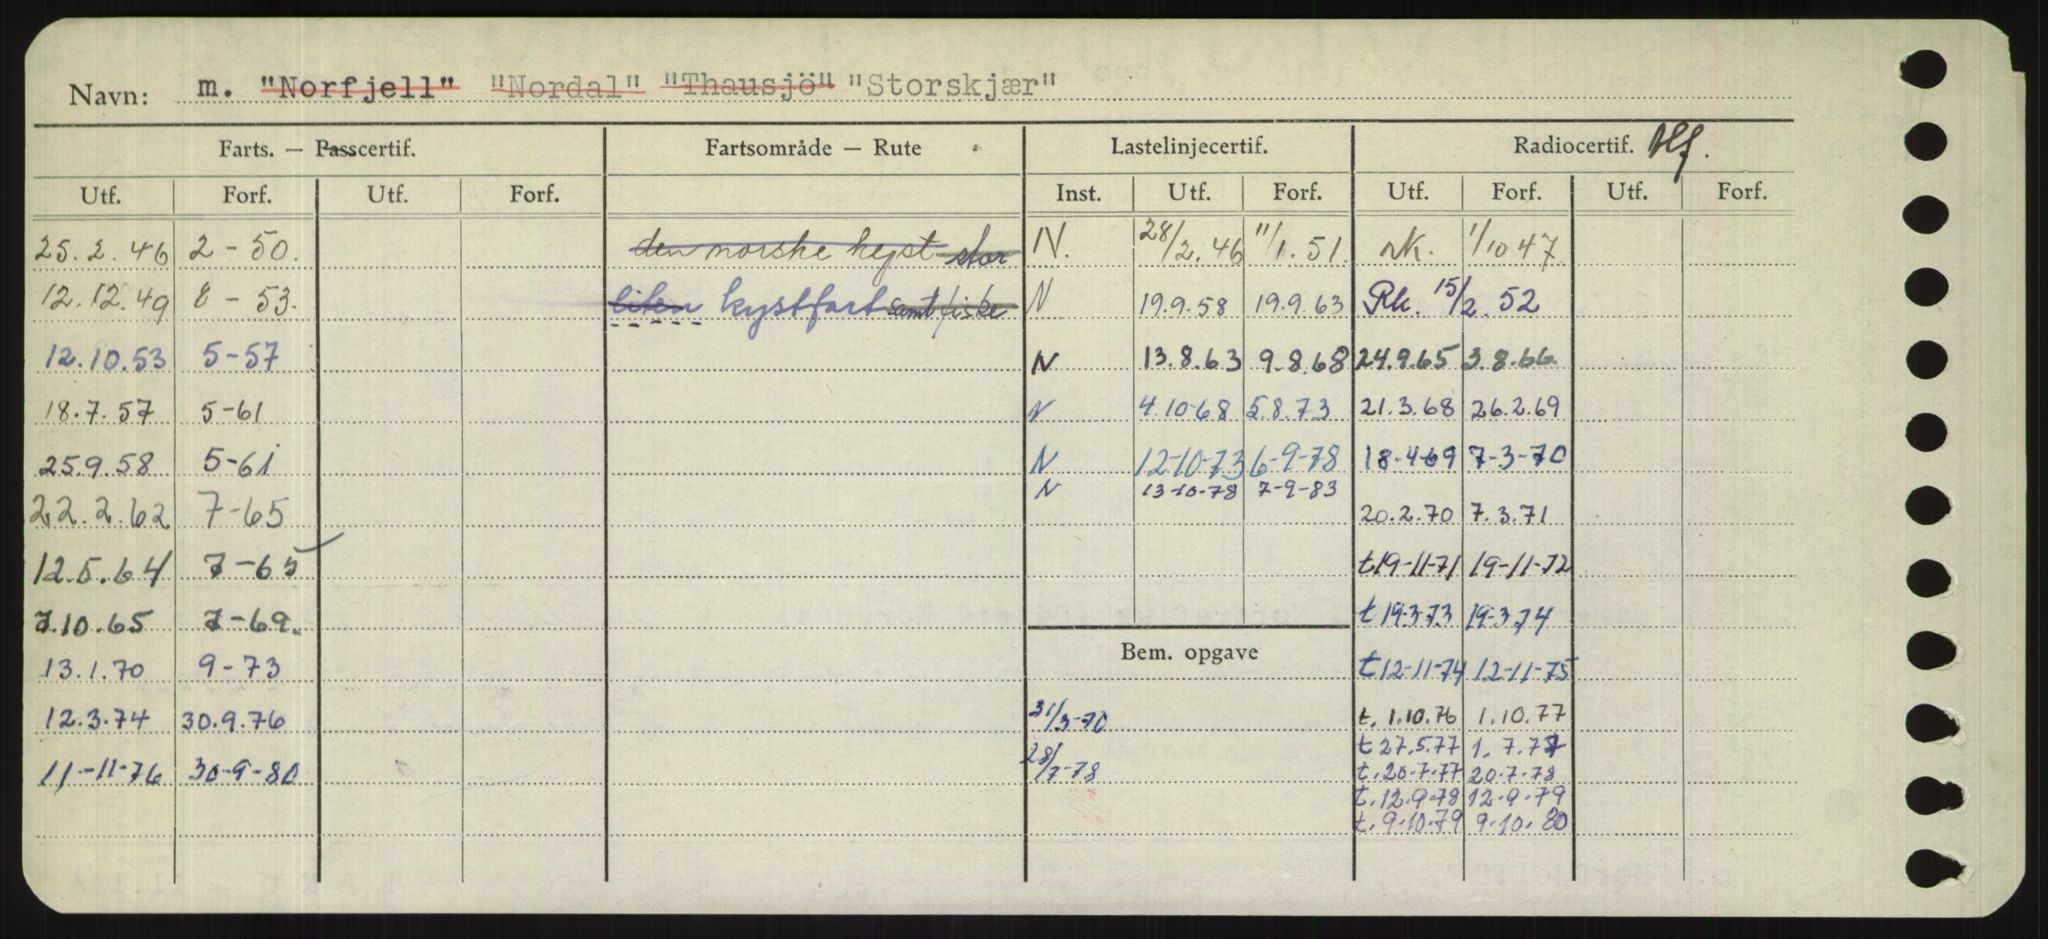 Navn: m. "Norfjell" "Nordal" "Thausjö" "Storskjær"
Farts. — Passcertif. Fartsområde — Rute Lastelinjecertif. Radiocertif.
Utf. Forf. Utf. Forf. Inst. Utf. Forf. Utf. Forf. Utf. Forf.
25.2.46 2-50. den norske kyst stor N. 28/2.46 11/1.51. 1/10 47
12.12.49 8-53. liten kystfart samt fiske N 19.9.58 19.9.63 Rk. 15/2.52
12.10.53 5-57 N 13.8.63 9.8.68 24.9.65 3.8.66
18.7.57 5-61 N 4.10-68 5.8.73 21.3.68 26.2.69
25.9.58 5-61 N 12-10-73 6-9-78 18-4-69 7-3-70
N 13-10-78 7-9-83
22.2.62 7-65 20.2.70 7.3.71
12.5.64 7-65 t 19-11-71 19-11-72
7.10.65 7-69. t 19-3-73 19-3-74
Bem. opgave
13.1.70 9-73 t 12-11-74 12-11-75
12.3.74 30.9.76 31/3-70 t. 1.10.76 1.10.77
t 27.5.77 1.7.77
11-11-76 30-9-80 28/7-78 t. 20-7-77 20-7-78
t. 12-9-78 12-9-79
t. 9-10-79 9-10-80